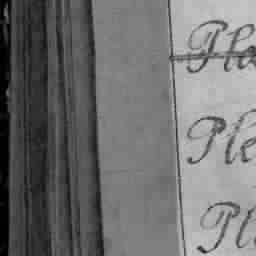 Pla
Ple
Pl